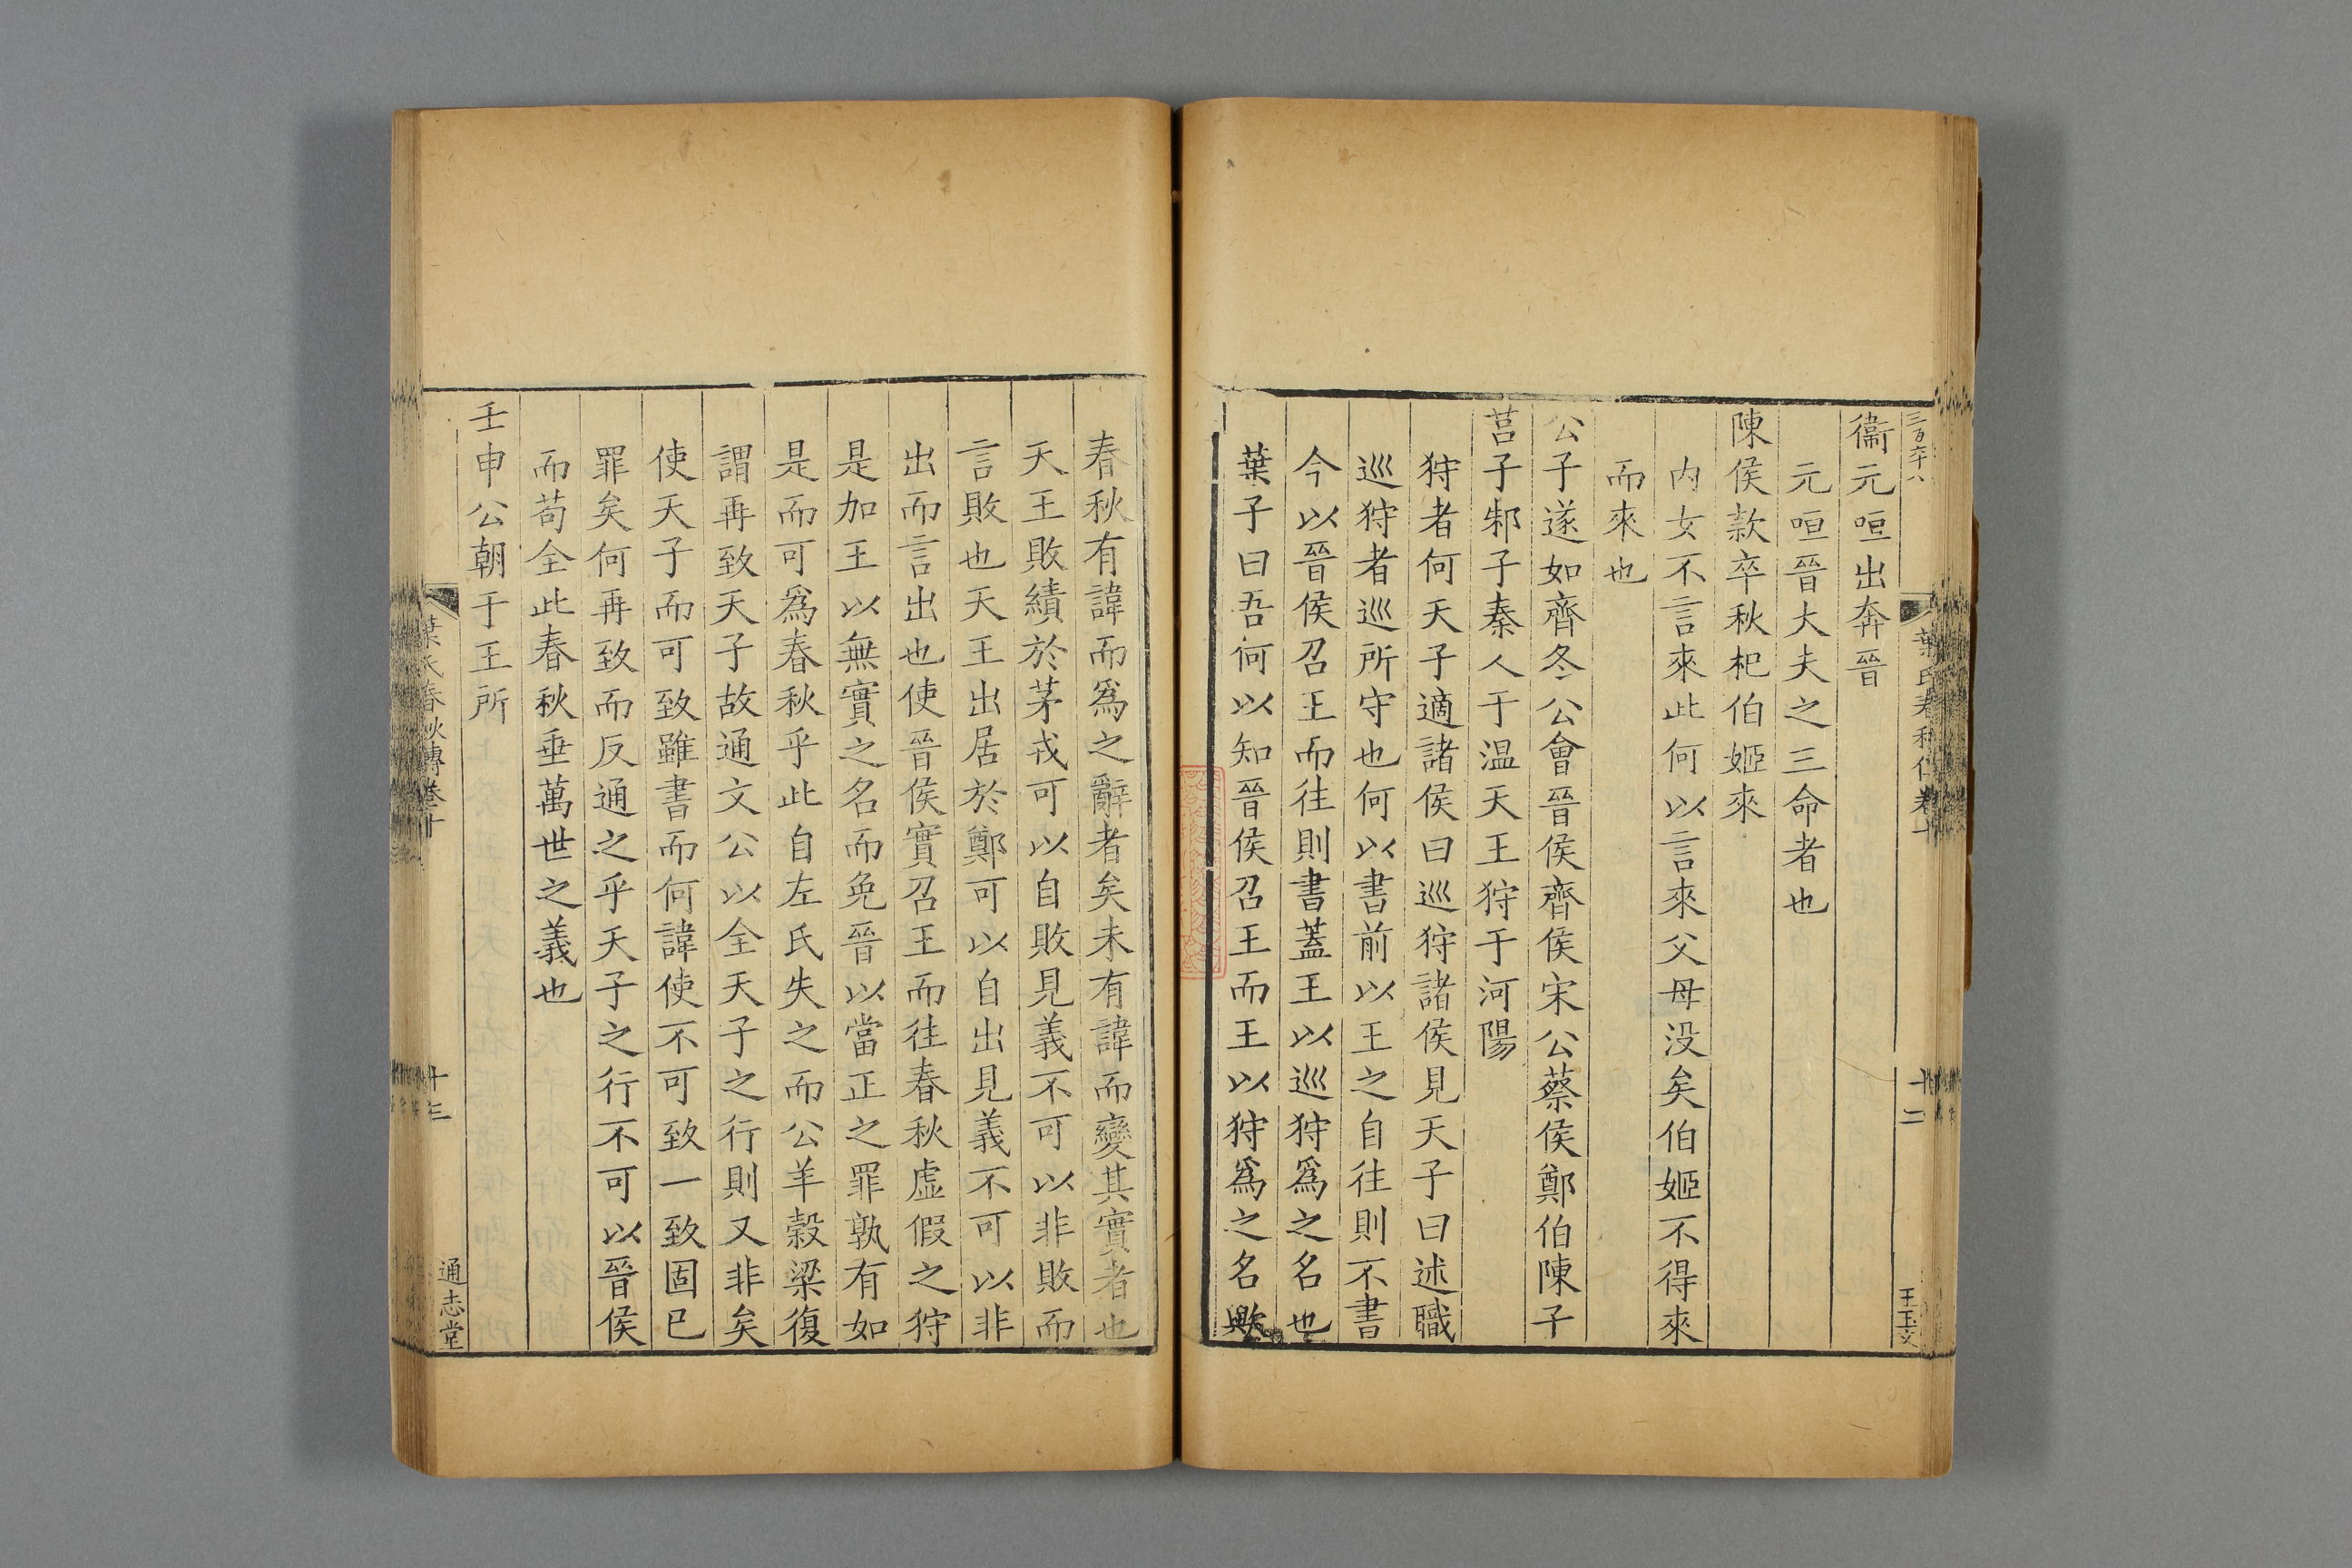 三百六十八
葉氏春秋傳卷十
十二
王玉文
衞元咺出奔晉
元咺晉大夫之三命者也
陳侯款卒秋杞伯姬來
內女不言來此何以言來父母没矣伯姬不得來
而來也
公子遂如齊冬公會晉侯齊侯宋公蔡侯鄭伯陳子
莒子邾子秦人于温天王狩于河陽
狩者何天子適諸侯曰巡狩諸侯見天子曰述職
巡狩者巡所守也何以書前以王之自往則不書
今以晉侯召王而往則書蓋王以巡狩爲之名也
葉子曰吾何以知晉侯召王而王以狩爲之名歟
春秋有諱而爲之辭者矣未有諱而變其實者也
天王敗績於茅戎可以自敗見義不可以非敗而
言敗也天王出居於鄭可以自出見義不可以非
出而言出也使晉侯實召王而往春秋虛假之狩
是加王以無實之名而免晉以當正之罪孰有如
是而可爲春秋乎此自左氏失之而公羊穀梁復
謂再致天子故通文公以全天子之行則又非矣
使天子而可致雖書而何諱使不可致一致固已
罪矣何再致而反通之乎天子之行不可以晉侯
而苟全此春秋垂萬世之義也
壬申公朝于王所
葉氏春秋傳卷十
十三
通志堂